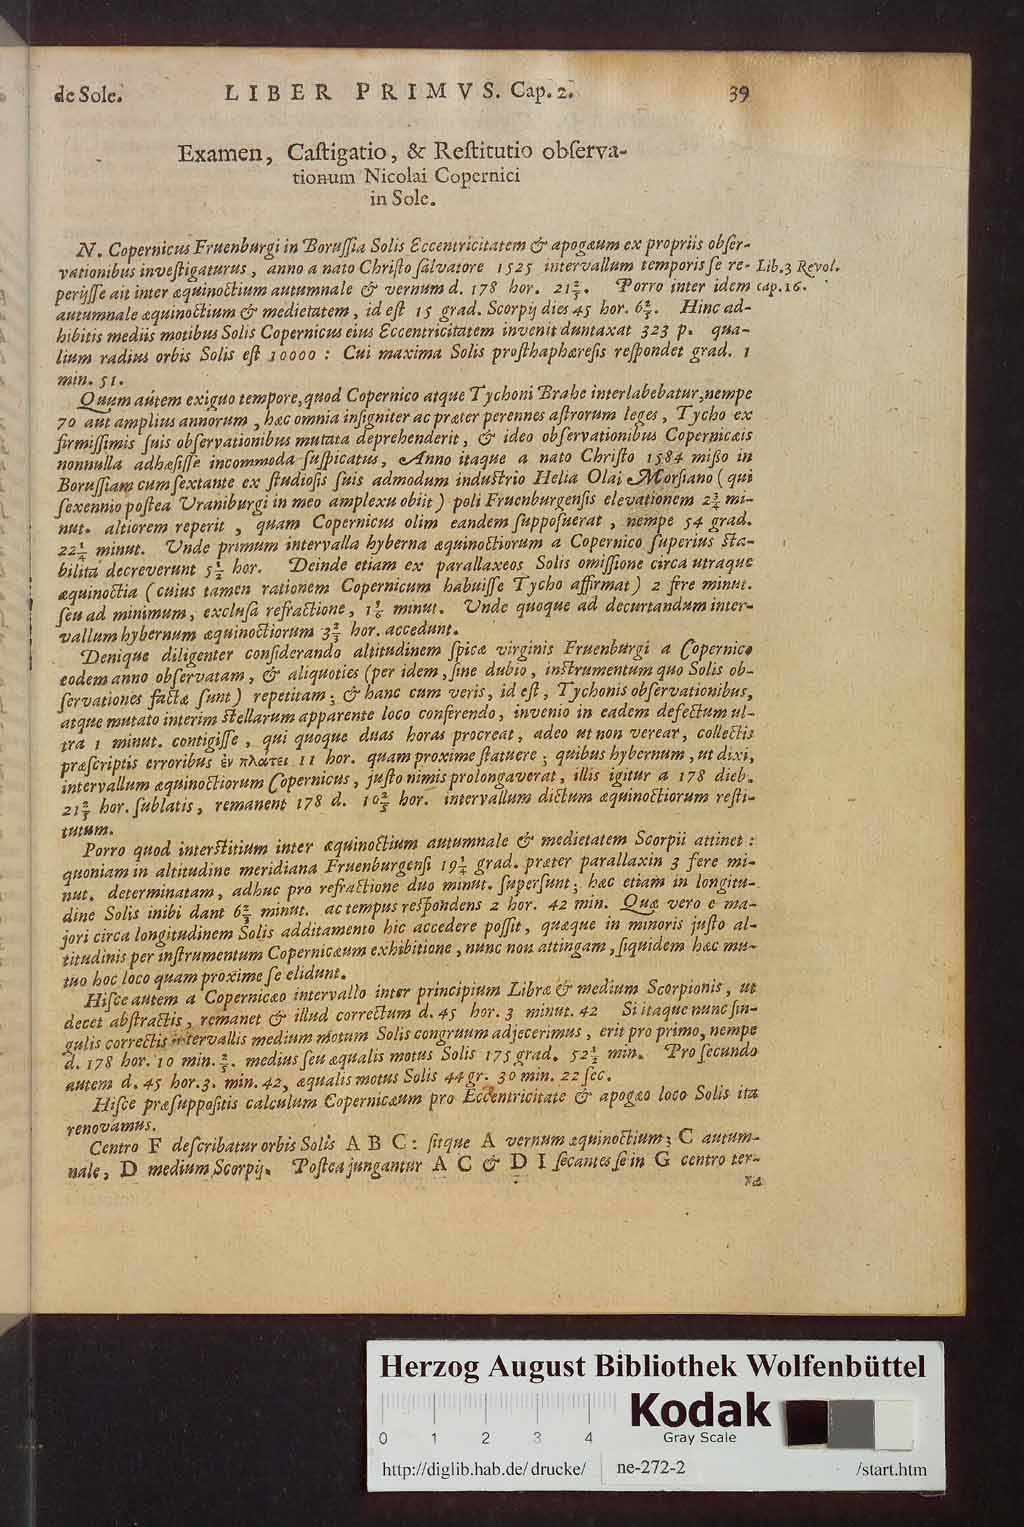 de Sole. LIBER PRIMVS. Cap. 2. 39
Examen, Caſtigatio, & Reſtitutio obſerva-
tionum Nicolai Copernici
in Sole.
N. Copernicus Fruenburgi in Boruſſia Solis Eccentricitatem & apogæum ex propriis obſer-
vationibus inveſtigaturus, anno a nato Chriſto ſalvatore 1525 intervallum temporis ſe re- Lib. 3 Revol.
perijſſe ait inter æquinoctium autumnale & vernum d. 178 hor. 21 2/5. Porro inter idem cap. 16.
autumnale æquinoctium & medietatem, id eſt 15 grad. Scorpij dies 45 hor. 6 2/5. Hinc ad-
hibitis mediis motibus Solis Copernicus eius Eccentricitatem invenit duntaxat 323 p. qua-
lium radius orbis Solis eſt 10000: Cui maxima Solis proſthaphæreſis reſpondet grad. 1
min. 51.
Quum autem exiguo tempore, quod Copernico atque Tychoni Brahe interlabebatur, nempe
70 aut amplius annorum, hæc omnia inſigniter ac præter perennes aſtrorum leges, Tycho ex
firmiſſimis ſuis obſervationibus mutata deprehenderit, & ideo obſervationibus Copernicæis
nonnulla adhæſiſſe incommoda ſuſpicatus, Anno itaque a nato Chriſto 1584 miſſo in
Boruſſiam cum ſextante ex ſtudioſis ſuis admodum induſtrio Helia Olai Morſiano (qui
ſexennio poſtea Uraniburgi in meo amplexu obiit) poli Fruenburgenſis elevationem 2 3/4 mi-
nut. altiorem reperit, quam Copernicus olim eandem ſuppoſuerat, nempe 54 grad.
22 1/4 minut. Unde primum intervalla hyberna æquinoctiorum a Copernico ſuperius ſta-
bilita decreverunt 5 1/2 hor. Deinde etiam ex parallaxeos Solis omiſſione circa utraque
æquinoctia (cuius tamen rationem Copernicum habuiſſe Tycho affirmat) 2 fere minut.
ſeu ad minimum, excluſa refractione, minut. Unde quoque ad decurtandum inter-
vallum hybernum æquinoctiorum 3 2/3 hor. accedunt.
Denique diligenter conſiderando altitudinem ſpicæ virginis Fruenburgi a Copernico
eodem anno obſervatam, & aliquoties (per idem, ſine dubio, inſtrumentum quo Solis ob-
ſervationes factæ ſunt) repetitam; & hanc cum veris, id eſt, Tychonis obſervationibus,
atque mutato interim ſtellarum apparente loco conferendo, invenio in eadem defectum ul-
tra 1 minut. contigiſſe, qui quoque duas horas procreat, adeo ut non verear, collectis
præſcriptis erroribus ἐν πλάτει 11 hor. quam proxime ſtatuere; quibus hybernum, ut dixi,
intervallum æquinoctiorum Copernicus, juſto nimis prolongaverat, illis igitur a 178 dieb.
21 2/5 hor. ſublatis, remanent 178 d. 10 2/5 hor. intervallum dictum æquinoctiorum reſti-
tutum.
Porro quod interſtitium inter æquinoctium autumnale & medietatem Scorpii attinet:
quoniam in altitudine meridiana Fruenburgenſi 19 1/4 grad. præter parallaxin 3 fere mi-
nut. determinatam, adhuc pro refractione duo minut. ſuperſunt; hæc etiam in longitu-
dine Solis inibi dant 6 2/3 minut. ac tempus reſpondens 2 hor. 42 min. Quæ vero e ma-
jori circa longitudinem Solis additamento hic accedere poſſit, quæque in minoris juſto al-
titudinis per inſtrumentum Copernicæum exhibitione, nunc non attingam, ſiquidem hæc mu-
tuo hoc loco quam proxime ſe elidunt.
Hiſce autem a Copernicæo intervallo inter principium Libræ & medium Scorpionis, ut
decet abſtractis, remanet & illud correctum d. 45 hor. 3 minut. 42 Si itaque nunc ſin-
gulis correctis intervallis medium motum Solis congruum adjecerimus, erit pro primo, nempe
d. 178 hor. 10 min. 2/5. medius ſeu æqualis motus Solis 175 grad. 52 1/2 min. Pro ſecundo
autem d. 45 hor. 3. min. 42, æqualis motus Solis 44 gr. 30 min. 22 ſec.
Hiſce præſuppoſitis calculum Copernicæum pro Eccentricitate & apogæo loco Solis ita
renovamus.
Centro F deſcribatur orbis Solis A B C: ſitque A vernum æquinoctium; C autum-
nale, D medium Scorpij. Poſtea jungantur A C & D I ſecantes ſe in G centro ter-
ræ
Herzog August Bibliothek Wolfenbüttel
Kodak
Gray Scale
0 1 2 3 4
http://diglib.hab.de/drucke/ ne-272-2 /start.htm